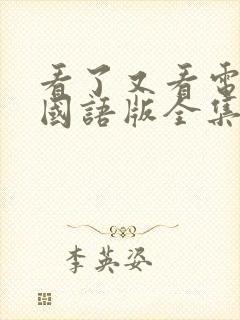 看了又看電
國語版全集
李英姿